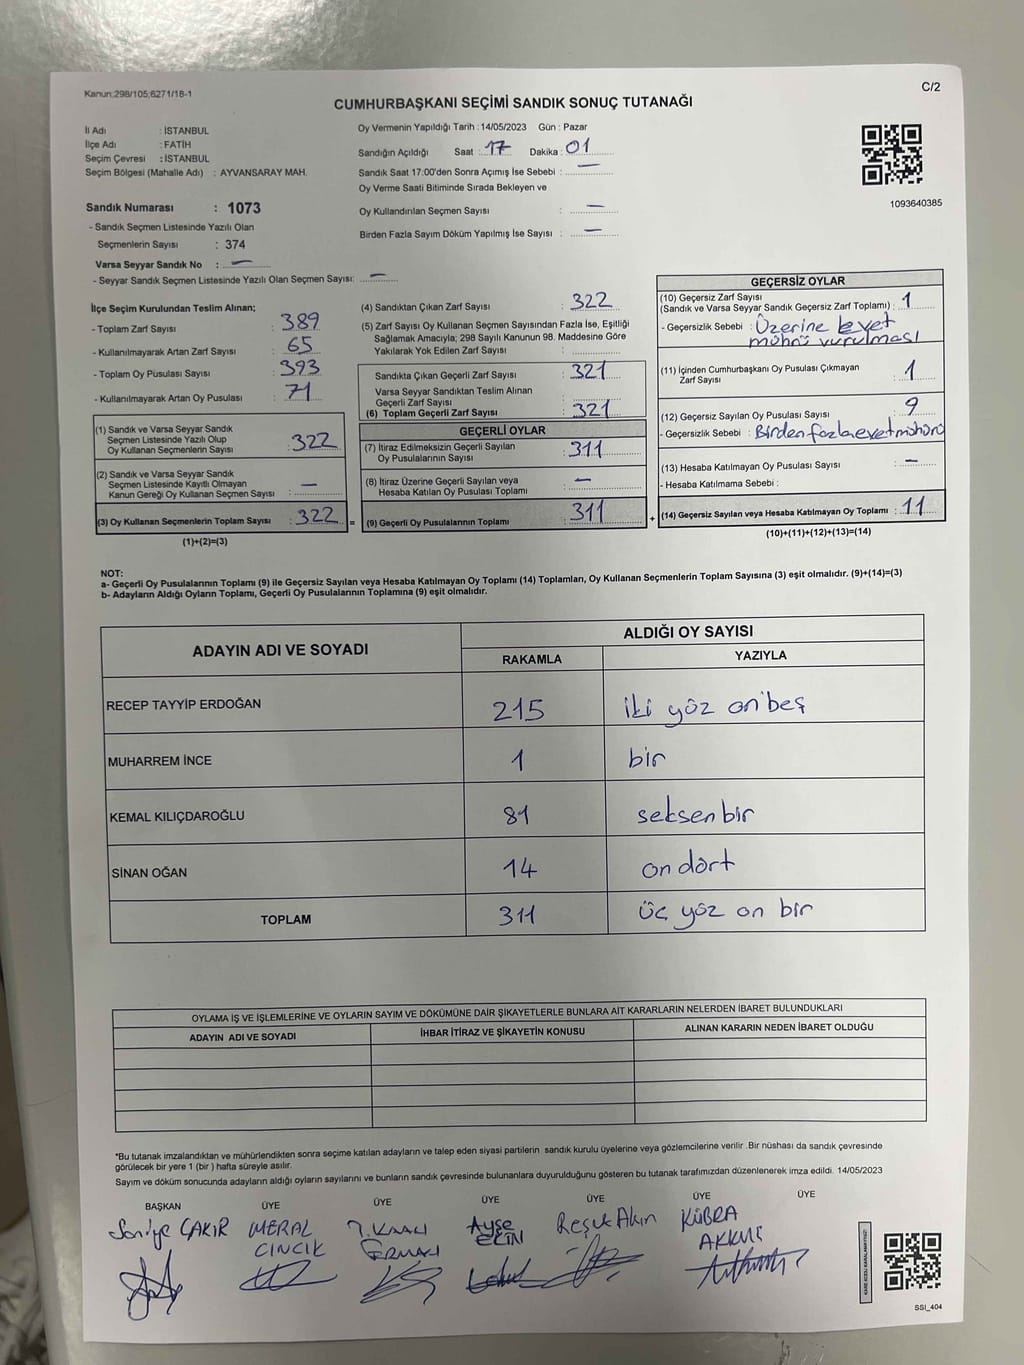 Kanun;298/105;6271/18-1
C/2
CUMHURBAŞKANI SEÇİMİ SANDIK SONUÇ TUTANAĞI
İl Adı : İSTANBUL
İlçe Adı : FATİH
Seçim Çevresi : İSTANBUL
Seçim Bölgesi (Mahalle Adı) : AYVANSARAY MAH.
Sandık Numarası : 1073
- Sandık Seçmen Listesinde Yazılı Olan
Seçmenlerin Sayısı : 374
Varsa Seyyar Sandık No : —
- Seyyar Sandık Seçmen Listesinde Yazılı Olan Seçmen Sayısı: —
Oy Vermenin Yapıldığı Tarih : 14/05/2023 Gün : Pazar
Sandığın Açıldığı Saat : 17 Dakika : 01
Sandık Saat 17:00'den Sonra Açımış İse Sebebi : —
Oy Verme Saati Bitiminde Sırada Bekleyen ve
Oy Kullandırılan Seçmen Sayısı : —
Birden Fazla Sayım Döküm Yapılmış İse Sayısı : —
1093640385
İlçe Seçim Kurulundan Teslim Alınan;
- Toplam Zarf Sayısı : 389
- Kullanılmayarak Artan Zarf Sayısı : 65
- Toplam Oy Pusulası Sayısı : 393
- Kullanılmayarak Artan Oy Pusulası : 71
(1) Sandık ve Varsa Seyyar Sandık
Seçmen Listesinde Yazılı Olup
Oy Kullanan Seçmenlerin Sayısı : 322
(2) Sandık ve Varsa Seyyar Sandık
Seçmen Listesinde Kayıtlı Olmayan
Kanun Gereği Oy Kullanan Seçmen Sayısı : —
(3) Oy Kullanan Seçmenlerin Toplam Sayısı : 322 =
(1)+(2)=(3)
(4) Sandıktan Çıkan Zarf Sayısı : 322
(5) Zarf Sayısı Oy Kullanan Seçmen Sayısından Fazla İse, Eşitliği
Sağlamak Amacıyla; 298 Sayılı Kanunun 98. Maddesine Göre
Yakılarak Yok Edilen Zarf Sayısı :
Sandıkta Çıkan Geçerli Zarf Sayısı : 321
Varsa Seyyar Sandıktan Teslim Alınan
Geçerli Zarf Sayısı :
(6) Toplam Geçerli Zarf Sayısı : 321
GEÇERLİ OYLAR
(7) İtiraz Edilmeksizin Geçerli Sayılan
Oy Pusulalarının Sayısı : 311
(8) İtiraz Üzerine Geçerli Sayılan veya
Hesaba Katılan Oy Pusulası Toplamı : —
(9) Geçerli Oy Pusulalarının Toplamı : 311 +
GEÇERSİZ OYLAR
(10) Geçersiz Zarf Sayısı
(Sandık ve Varsa Seyyar Sandık Geçersiz Zarf Toplamı) : 1
- Geçersizlik Sebebi : Üzerine Evet
mührü vurulması
(11) İçinden Cumhurbaşkanı Oy Pusulası Çıkmayan
Zarf Sayısı : 1
(12) Geçersiz Sayılan Oy Pusulası Sayısı : 9
- Geçersizlik Sebebi : Birden fazla evet mührü
(13) Hesaba Katılmayan Oy Pusulası Sayısı : —
- Hesaba Katılmama Sebebi :
(14) Geçersiz Sayılan veya Hesaba Katılmayan Oy Toplamı : 11
(10)+(11)+(12)+(13)=(14)
NOT:
a- Geçerli Oy Pusulalarının Toplamı (9) ile Geçersiz Sayılan veya Hesaba Katılmayan Oy Toplamı (14) Toplamları, Oy Kullanan Seçmenlerin Toplam Sayısına (3) eşit olmalıdır. (9)+(14)=(3)
b- Adayların Aldığı Oyların Toplamı, Geçerli Oy Pusulalarının Toplamına (9) eşit olmalıdır.
ADAYIN ADI VE SOYADI ALDIĞI OY SAYISI
RAKAMLA YAZIYLA
RECEP TAYYİP ERDOĞAN 215 iki yüz on beş
MUHARREM İNCE 1 bir
KEMAL KILIÇDAROĞLU 81 seksen bir
SİNAN OĞAN 14 on dört
TOPLAM 311 üç yüz on bir
OYLAMA İŞ VE İŞLEMLERİNE VE OYLARIN SAYIM VE DÖKÜMÜNE DAİR ŞİKAYETLERLE BUNLARA AİT KARARLARIN NELERDEN İBARET BULUNDUKLARI
ADAYIN ADI VE SOYADI İHBAR İTİRAZ VE ŞİKAYETİN KONUSU ALINAN KARARIN NEDEN İBARET OLDUĞU
*Bu tutanak imzalandıktan ve mühürlendikten sonra seçime katılan adayların ve talep eden siyasi partilerin sandık kurulu üyelerine veya gözlemcilerine verilir .Bir nüshası da sandık çevresinde
görülecek bir yere 1 (bir ) hafta süreyle asılır.
Sayım ve döküm sonucunda adayların aldığı oyların sayılarını ve bunların sandık çevresinde bulunanlara duyurulduğunu gösteren bu tutanak tarafımızdan düzenlenerek imza edildi. 14/05/2023
BAŞKAN ÜYE ÜYE ÜYE ÜYE ÜYE ÜYE
Soniye ÇAKIR MERAL Ayşe Reşuk Akın KÜBRA
CINCIK ECİN AKKUŞ
SSI_404